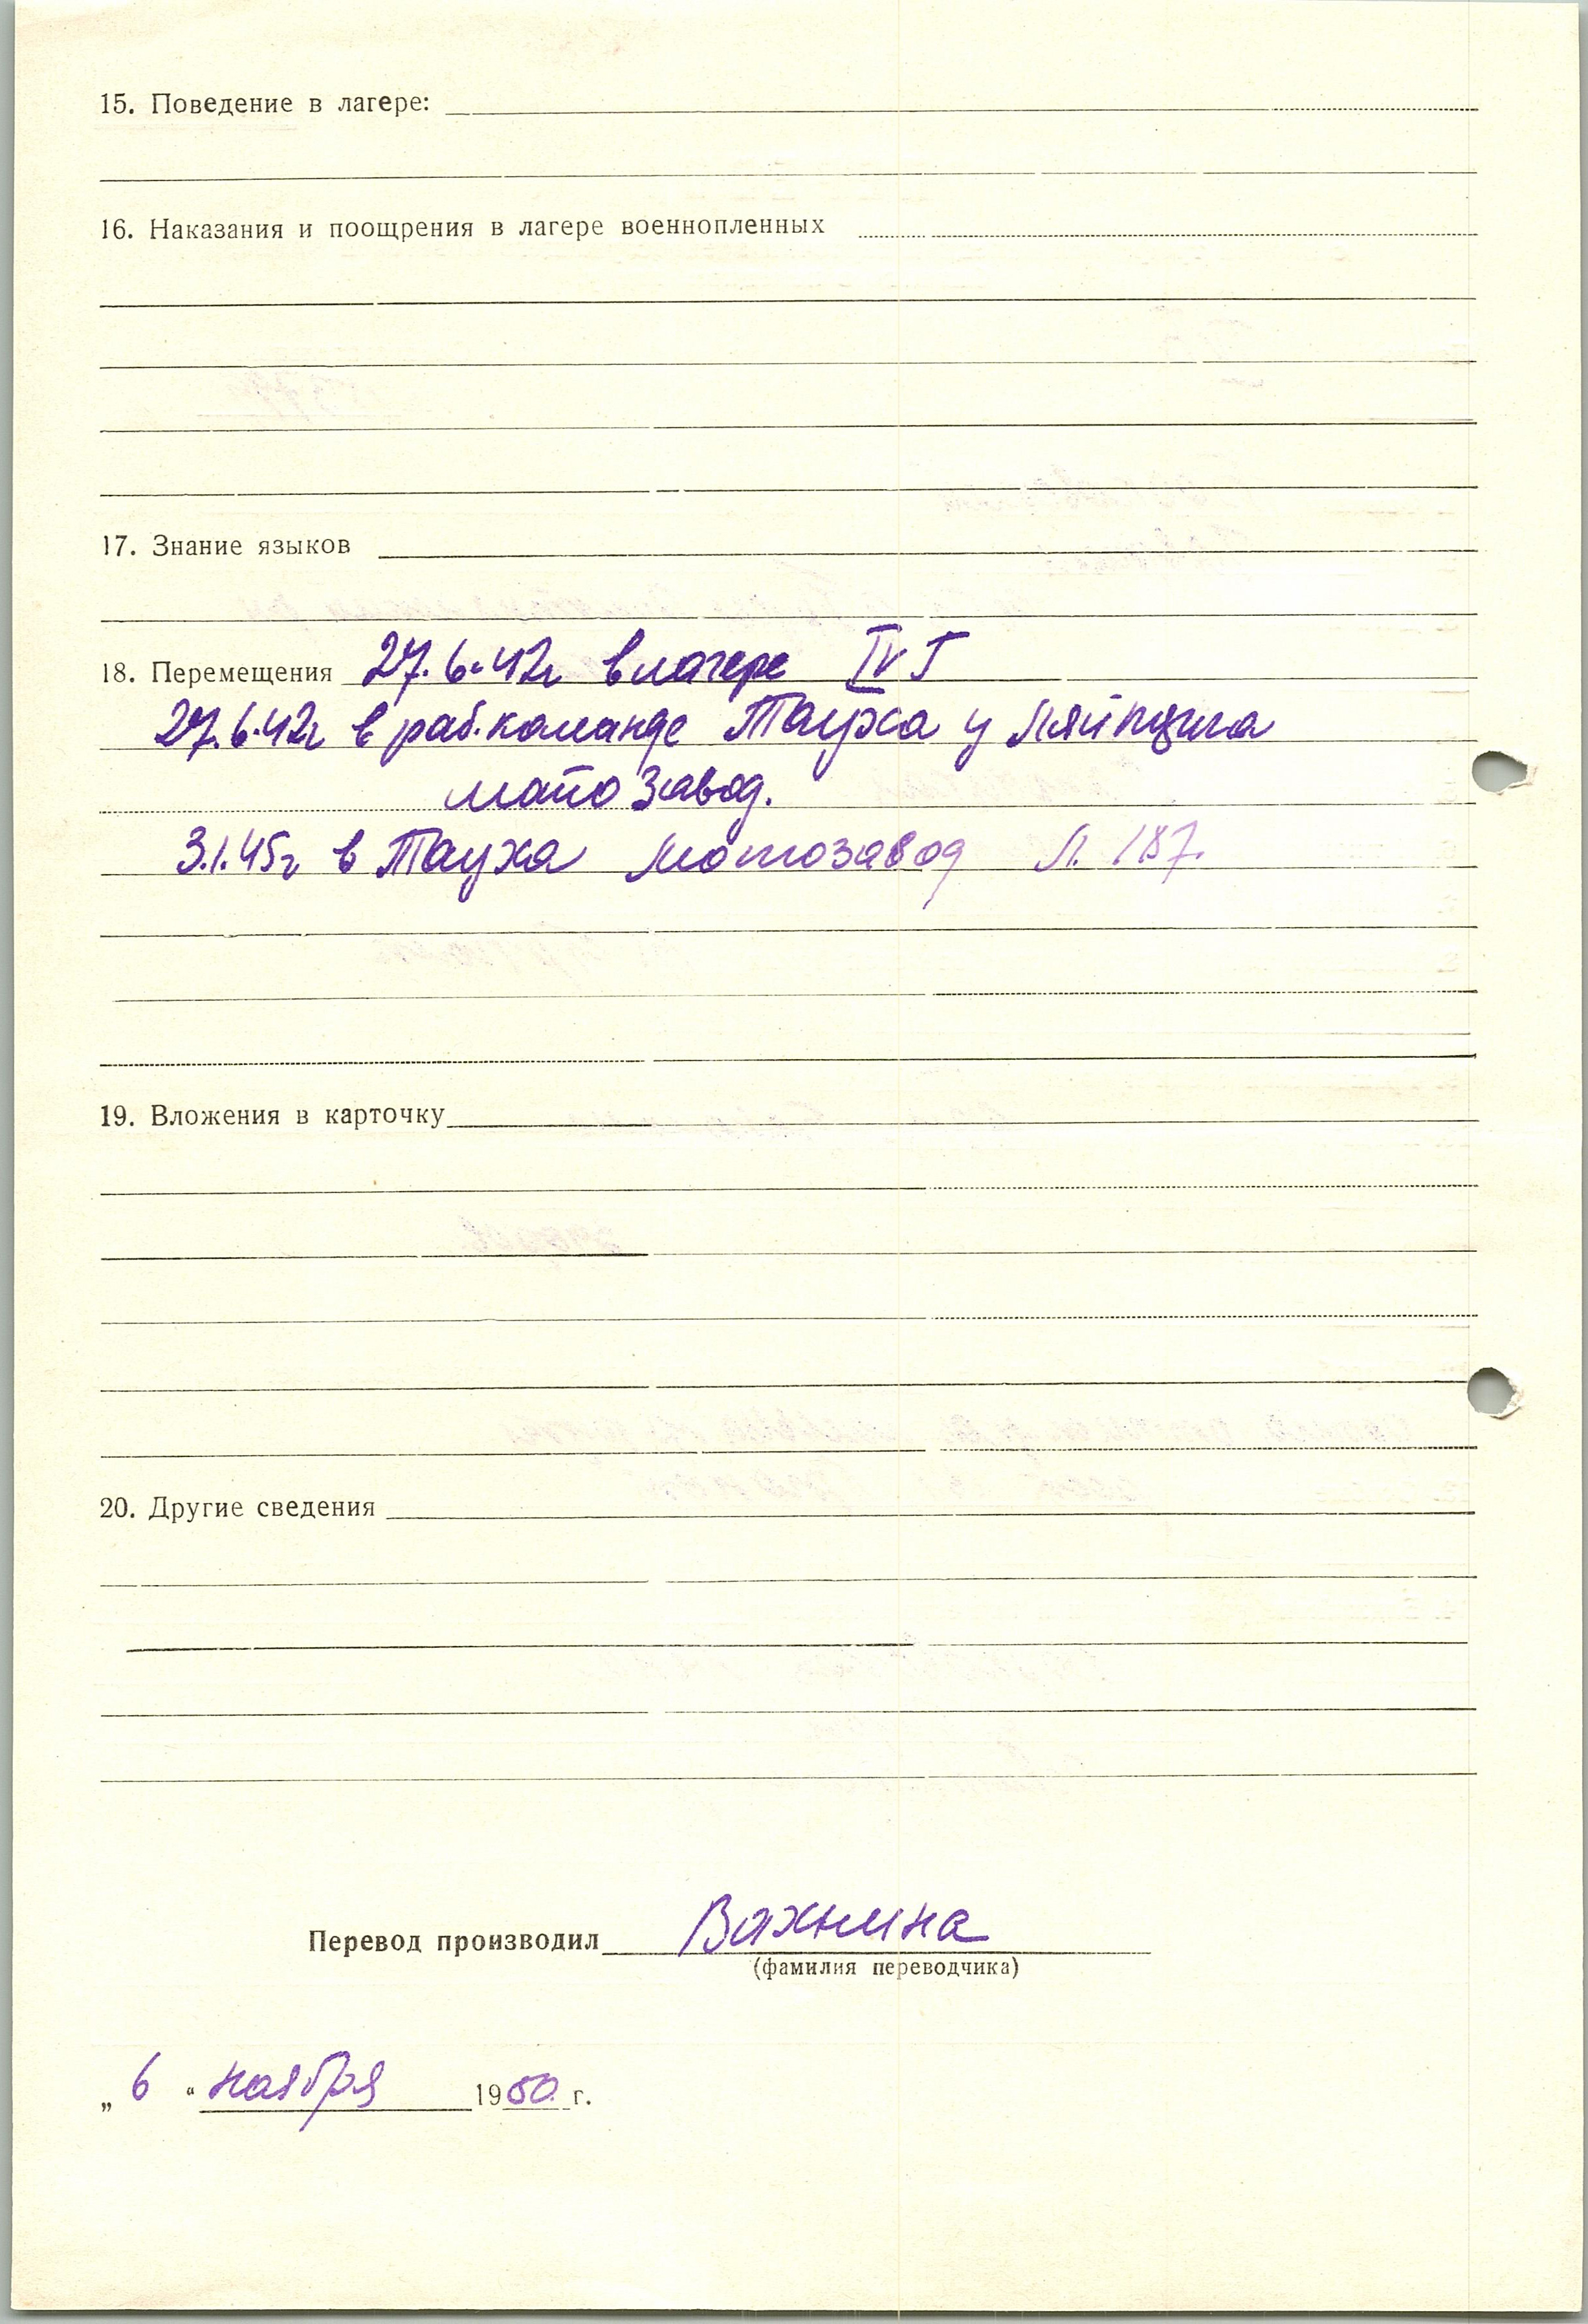 15. Поведение в лагере:
16. Наказания и поощрения в лагере военнопленных
17. Знание языков
18. Перемещения 27.6.42г в лагере IV Г
27.6.42г в раб.команде Тауха у Ляйпцига
мото завод.
3.1.45г в Тауха Мотозавод Л. 187.
19. Вложения в карточку
20. Другие сведения
Перевод производил Вахнина
(фамилия переводчика)
„ 6 “ ноября 1950 г.